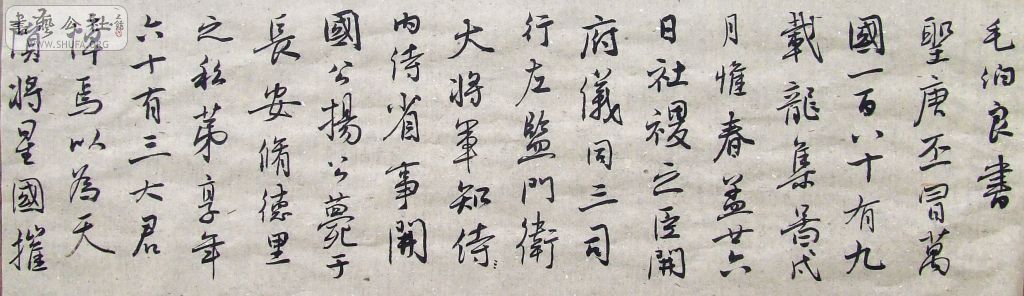 毛伯良書
聖唐丕冒萬
國一百八十有九
載龍集景戌
月惟春孟廿六
日社稷之臣開
府儀同三司
行左監門衛
大將軍知侍
內侍省事開
國公揚公薨于
長安脩德里
之私第享年
六十有三大君
焉以為天
將星國摧
WWW.SHUFA.ORG